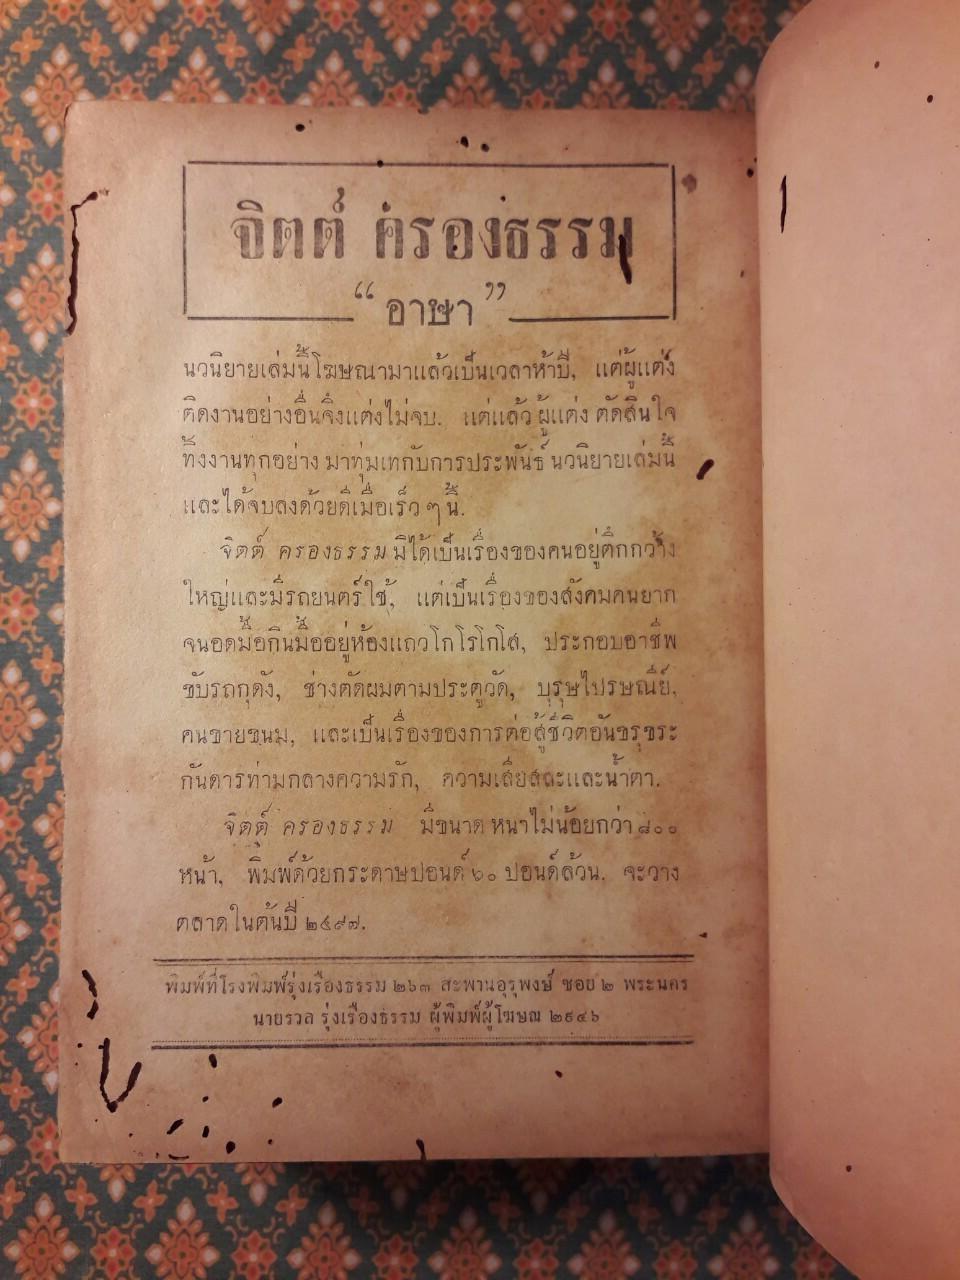 จิตต์ ครองธรรม
“อาษา”
นวนิยายเล่มนี้โฆษณามาแล้วเป็นเวลาห้าปี, แต่ผู้แต่ง
ติดงานอย่างอื่นจึงแต่งไม่จบ. แต่แล้ว ผู้แต่ง ตัดสินใจ
ทิ้งงานทุกอย่าง มาทุ่มเทกับการประพันธ์ นวนิยายเล่มนี้
และได้จบลงด้วยดีเมื่อเร็ว ๆ นี้.
จิตต์ ครองธรรม มิได้เป็นเรื่องของคนอยู่ตึกกว้าง
ใหญ่และมีรถยนตร์ใช้, แต่เป็นเรื่องของสังคมคนยาก
จนอดมื้อกินมื้ออยู่ห้องแถวโกโรโกโส, ประกอบอาชีพ
ขับรถกุดัง, ช่างตัดผมตามประตูวัด, บุรุษไปรษณีย์,
คนขายขนม, และเป็นเรื่องของการต่อสู้ชีวิตอันขรุขระ
กันดารท่ามกลางความรัก, ความเสียสละและน้ำตา.
จิตต์ ครองธรรม มีขนาด หนาไม่น้อยกว่า ๘๐๐
หน้า, พิมพ์ด้วยกระดาษปอนด์ ๖๐ ปอนด์ล้วน. จะวาง
ตลาดในต้นปี ๒๔๙๗.
พิมพ์ที่โรงพิมพ์รุ่งเรืองธรรม ๒๖๓ สะพานอุรุพงษ์ ซอย ๒ พระนคร
นายรวล รุ่งเรืองธรรม ผู้พิมพ์ผู้โฆษณ ๒๔๙๖